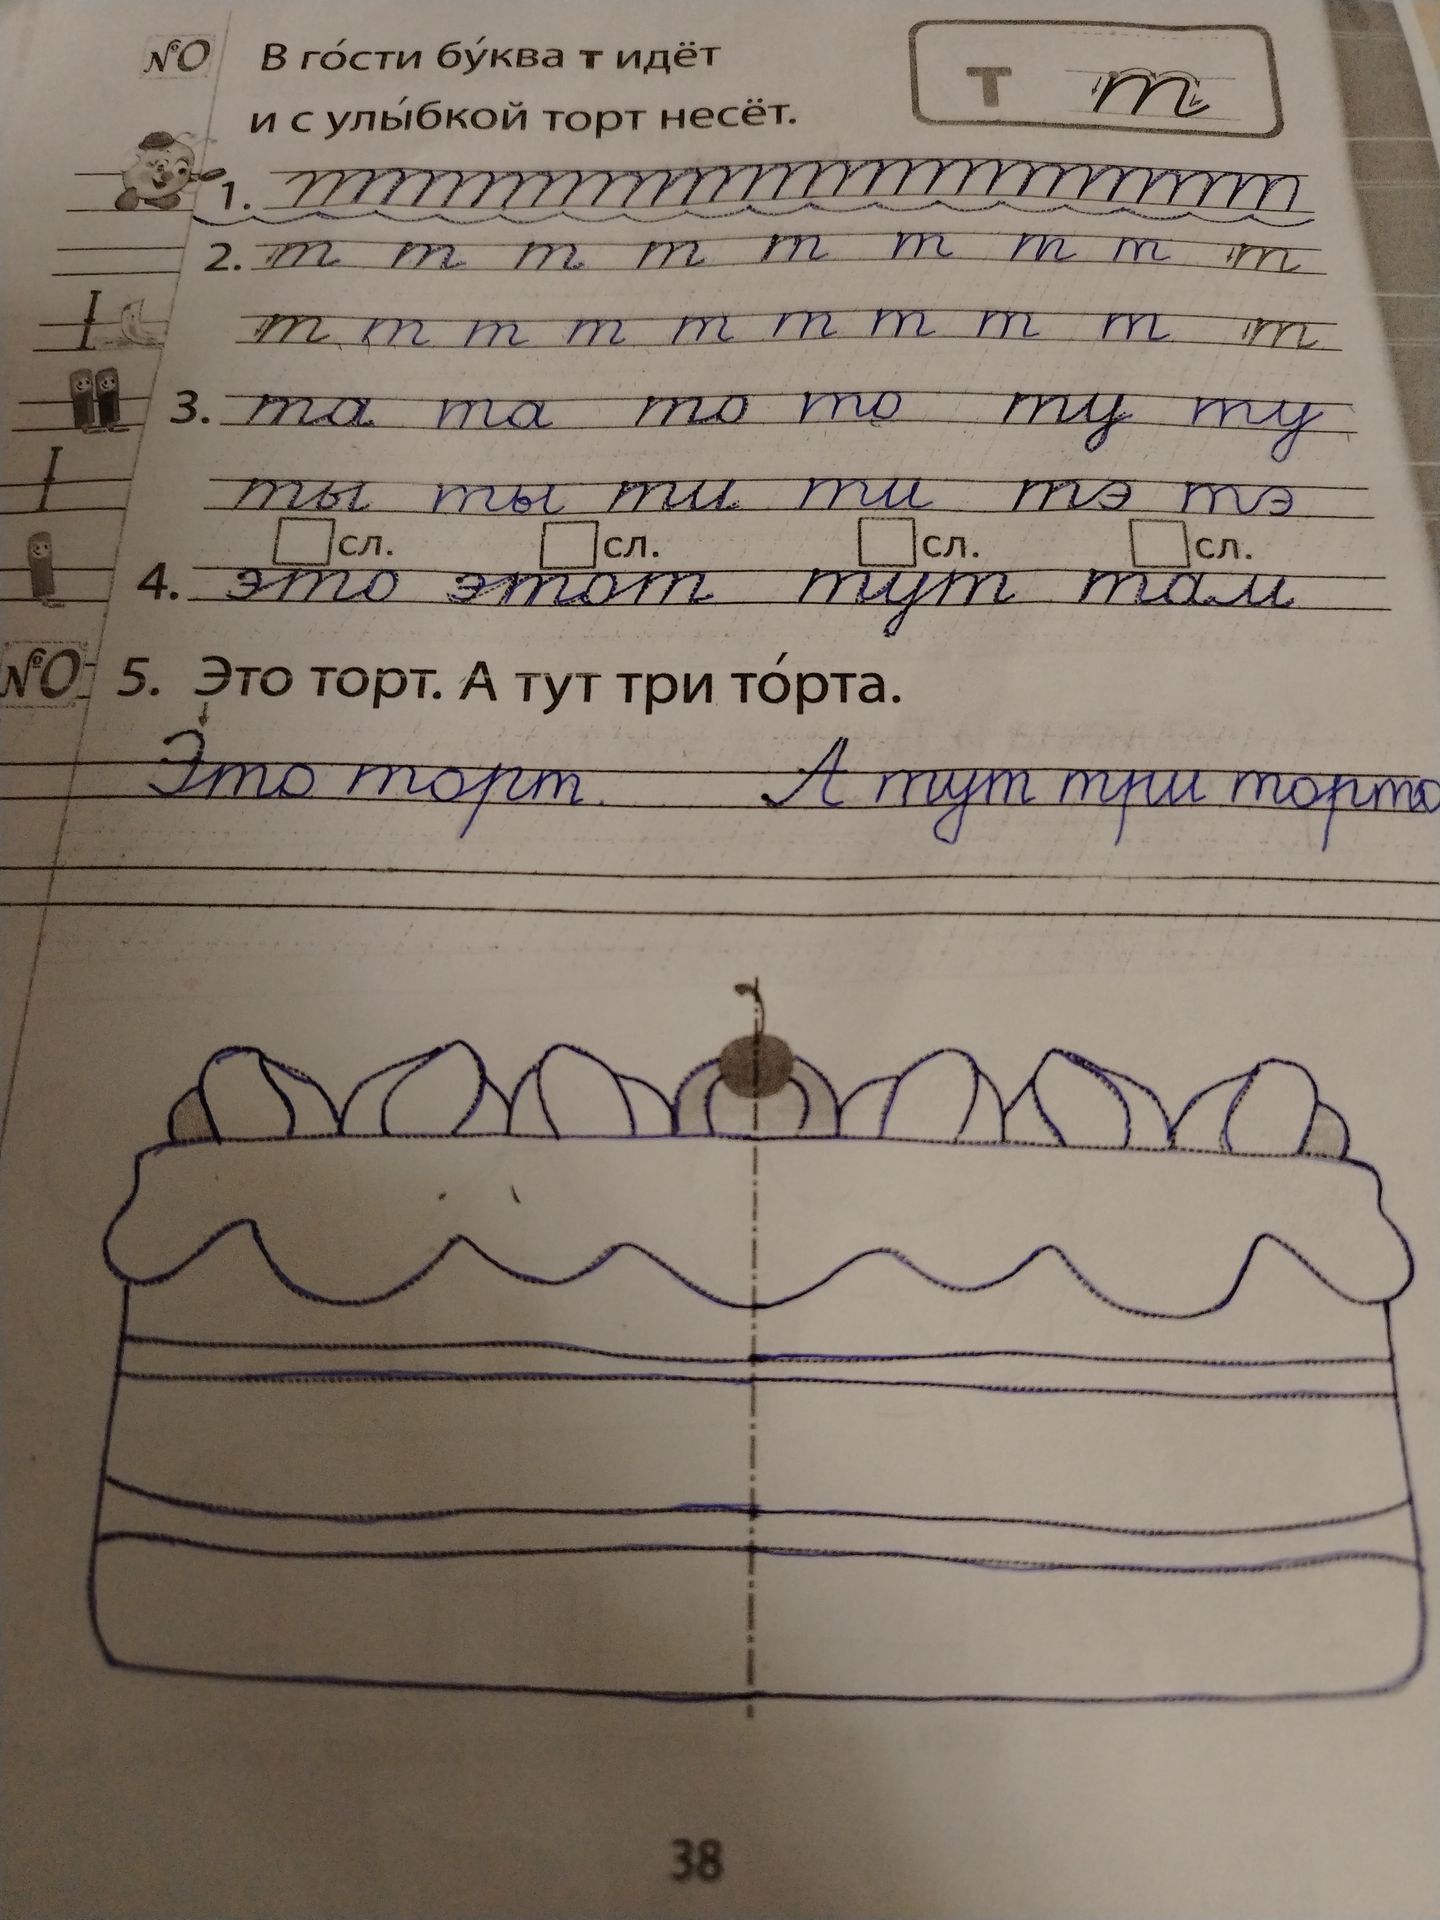 №О В го́сти бу́ква т идёт
и с улы́бкой торт несёт.
Т т
1.
2. т т т т т т т т т
т т т т т т т т т т
3. та та то то ту ту
ты ты ти ти тэ тэ
сл. сл. сл. сл.
4. это этот тут там
№О 5. Это торт. А тут три то́рта.
Это торт. А тут три торта
38